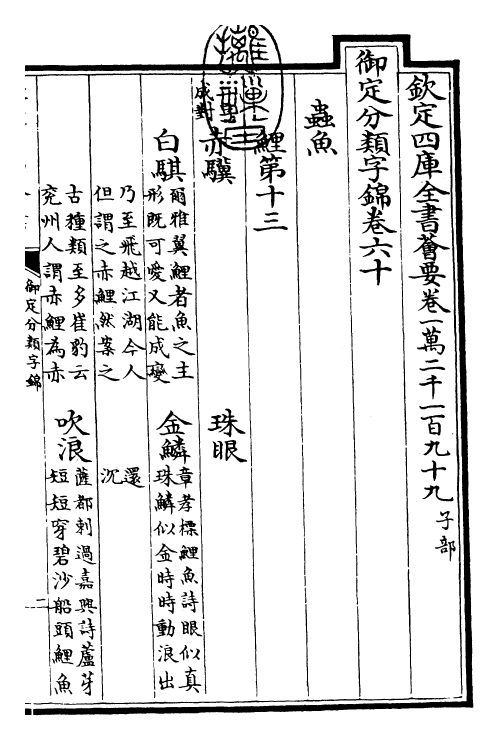 欽定四庫全書薈要卷一萬二千一百九十九 子部
御定分類字錦卷六十
蟲魚
鯉第十三
成對
赤驥 珠眼
白騏
爾雅翼鯉者魚之主
形既可愛又能成變
金鱗
章孝標鯉魚詩眼似真
珠鱗似金時時動浪出
乃至飛越江湖今人
但謂之赤鯉然案之
還
沉
古種類至多崔豹云
兖州人謂赤鯉為赤
吹浪
薩都剌過嘉興詩蘆芽
短短穿碧沙船頭鯉魚
御定分類字錦